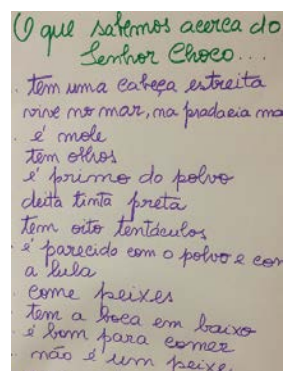 O que sabemos acerca do
Senhor Choco...
. tem uma cabeça estreita
vive no mar, na pradaria ma
. é mole
tem olhos
é primo do polvo
deita tinta preta
tem oito tentáculos
. é parecido com o polvo e com
a lula
. come peixes
tem a boca em baixo
. é bom para comer
. não é um peixe